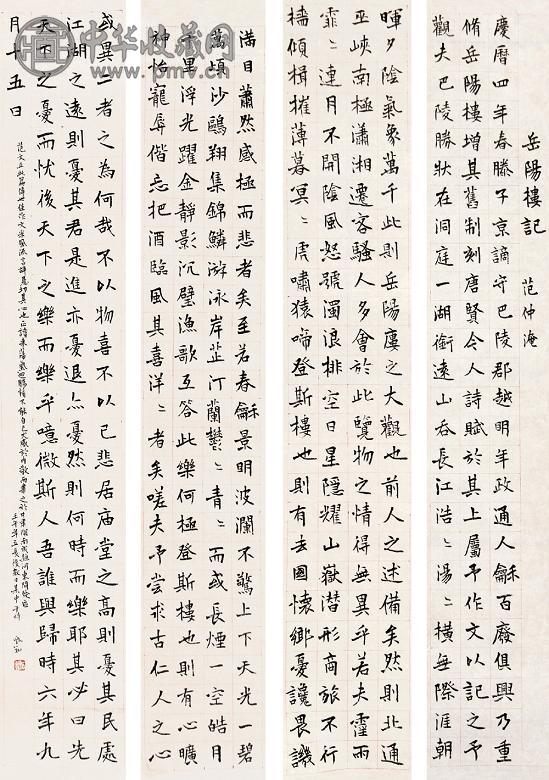 岳陽樓記 范仲淹
慶曆四年春滕子京謫守巴陵郡越明年政通人龢百廢俱興乃重
脩岳陽樓增其舊制刻唐賢今人詩賦於其上屬予作文以記之予
觀夫巴陵勝狀在洞庭一湖銜遠山吞長江浩〻湯〻橫無際涯朝
暉夕陰氣象萬千此則岳陽樓之大觀也前人之述備矣然則北通
巫峽南極瀟湘遷客騷人多會於此覽物之情得無異乎若夫霪雨
霏〻連月不開陰風怒號濁浪排空日星隱耀山嶽潛形商旅不行
檣傾楫摧薄暮冥〻虎嘯猿啼登斯樓也則有去國懷鄉憂讒畏譏
滿目蕭然感極而悲者矣至若春龢景明波瀾不驚上下天光一碧
萬頃沙鷗翔集錦鱗游泳岸芷汀蘭鬱〻青〻而或長煙一空皓月
千里浮光躍金靜影沉璧漁歌互答此樂何極登斯樓也則有心曠
神怡寵辱偕忘把酒臨風其喜洋〻者矣嗟夫予嘗求古仁人之心
或異二者之為何哉不以物喜不以己悲居庙堂之高則憂其民處
江湖之遠則憂其君是進亦憂退亦憂然則何時而樂耶其必曰先
天下之憂而忧後天下之樂而樂乎噫微斯人吾誰與歸時六年九
月十五日
中华收藏网